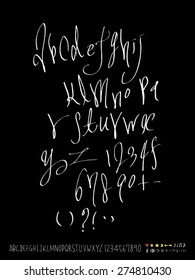 abcdefghij
klmnopq
rstuvwx
yz 12345
67890+-
()?!:,
ABCDEFGHIJKLMNOPQRSTUVWXYZ1234567890
shutterstock.com · 274810430